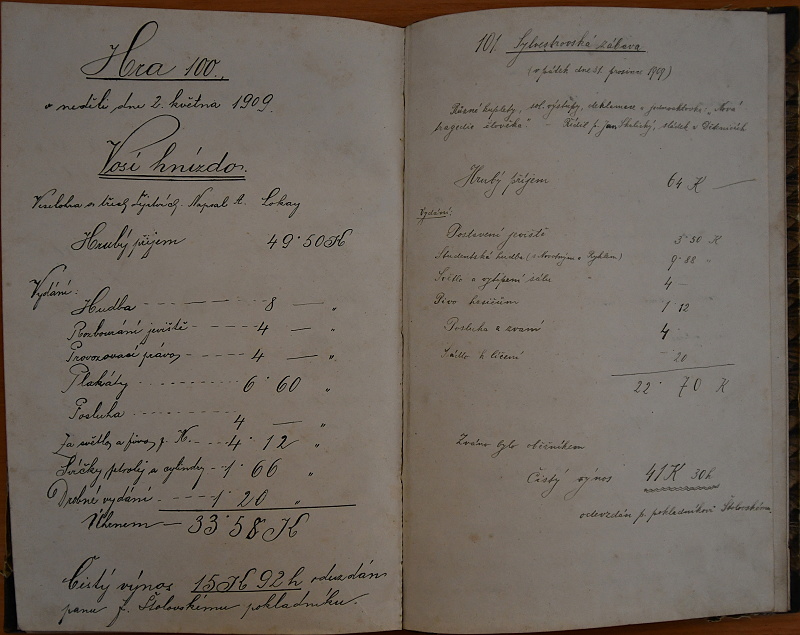 Hra 100.,
v neděli, dne 2. května 1909.
Vosí hnízdo.
Veselohra o třech Napsal A. Lokay
Hrubý příjem 49·50 K
Vydání:
Hudba 8 — „
Rozbourání jeviště 4 — „
Provozovací právo 4 — „
Plakáty 6 60 „
Posluha 4 — „
Za světlo a pivo p. H. 4·12 „
Svíčky petrolej a cylindry 1·66 „
Drobné vydání 1·20 „
Úhrnem 33·58 K
Čistý výnos 15 K 92 h odevzdán
panu f. Štolovskému pokladníku.
101. Sylvestrovská zábava
(v pátek dne 31. prosince 1909)
Různé kuplety, sol. výstupy, deklamace a jednoaktovka: „Nová
tragedie člověka". – Řídil p. Jan sládek v
Hrubý příjem 64 K —
Vydání:
Postavení jeviště 3·50 K
Studentská hudba 9·88 „
Světlo a vytápění sálu 4 —
Pivo hasičům 1·12
Posluha a zvaní 4
k líčení 20
22· 70 K
Zváno bylo oběžníkem
Čistý výnos 41 K 30 h
odevzdán p. pokladníkovi